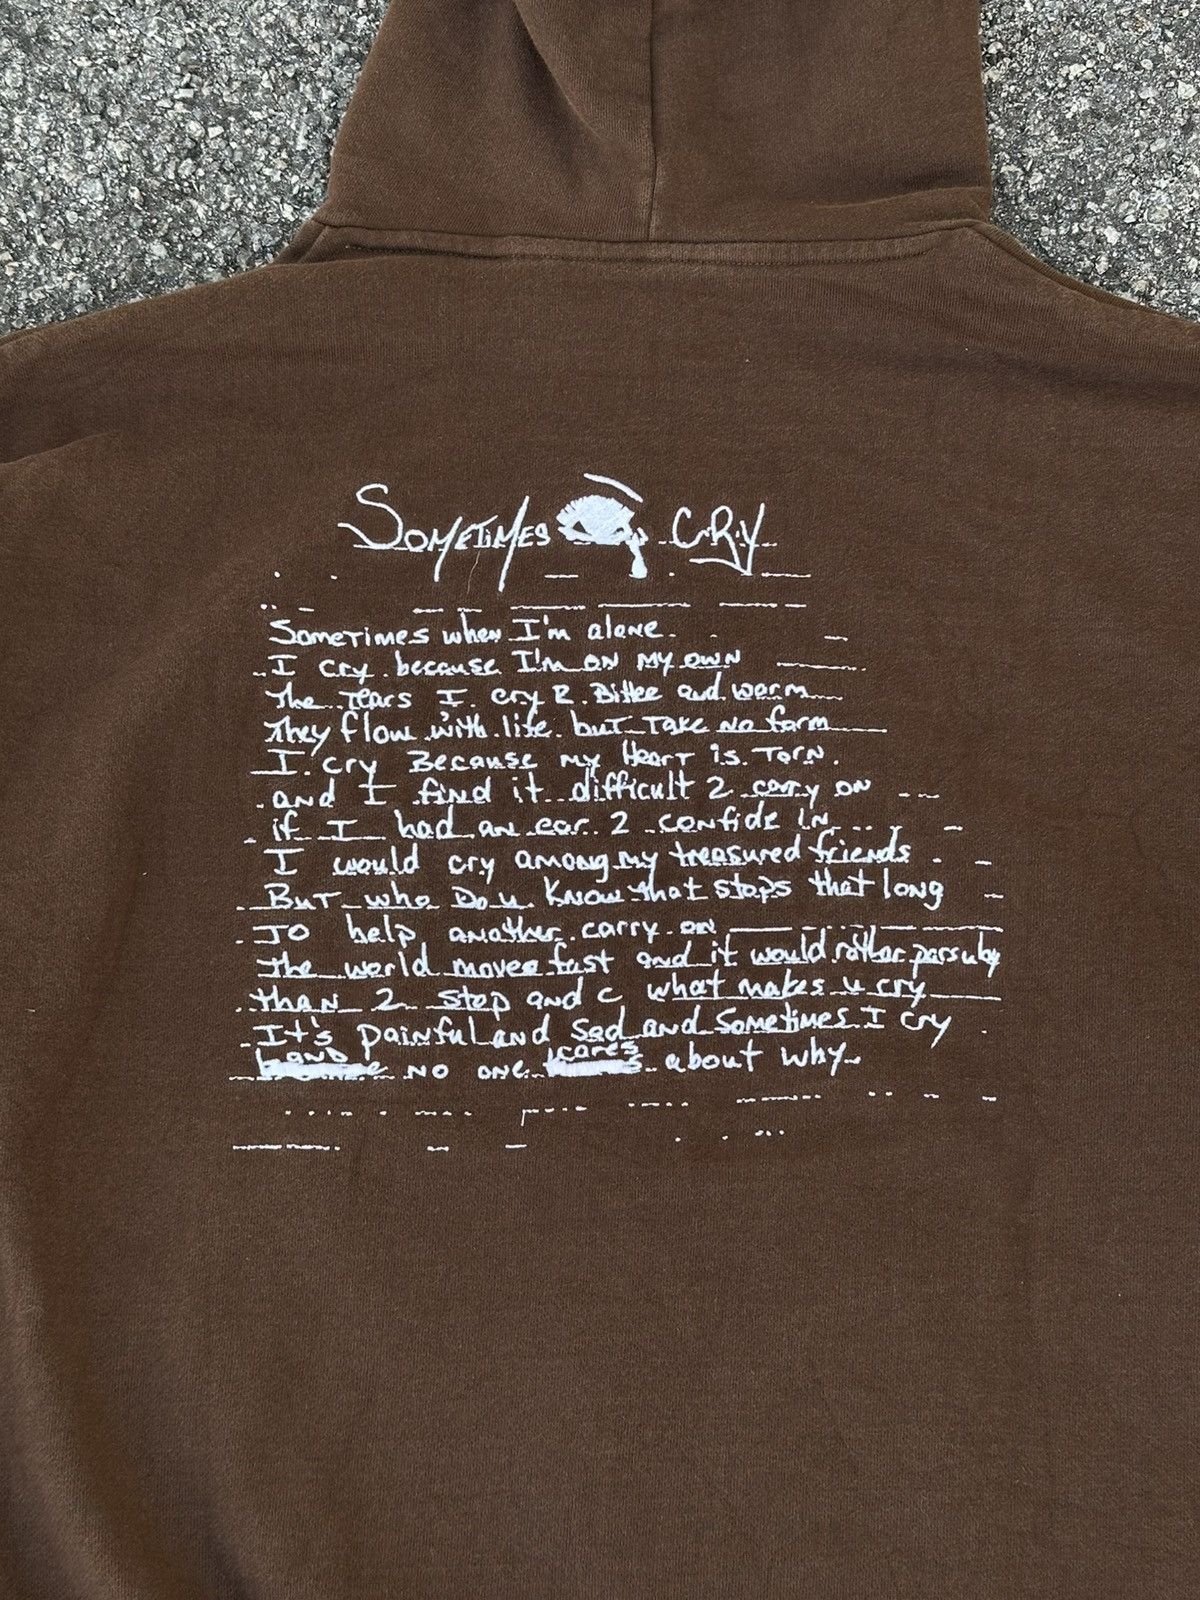 Sometimes Cry
Sometimes when I'm alone
I cry because I'm on my own
The Tears I cry R Bitter and warm
They flow with life but Take No form
I cry Because my Heart is Torn
and I find it difficult 2 carry on
if I had an ear 2 confide in
I would cry among my treasured friends
But who Do u Know that stops that long
To help another carry on
The world moves fast and it would rather pass u by
than 2 stop and c what makes u cry
It's painful and sad and sometimes I cry
and no one cares about why